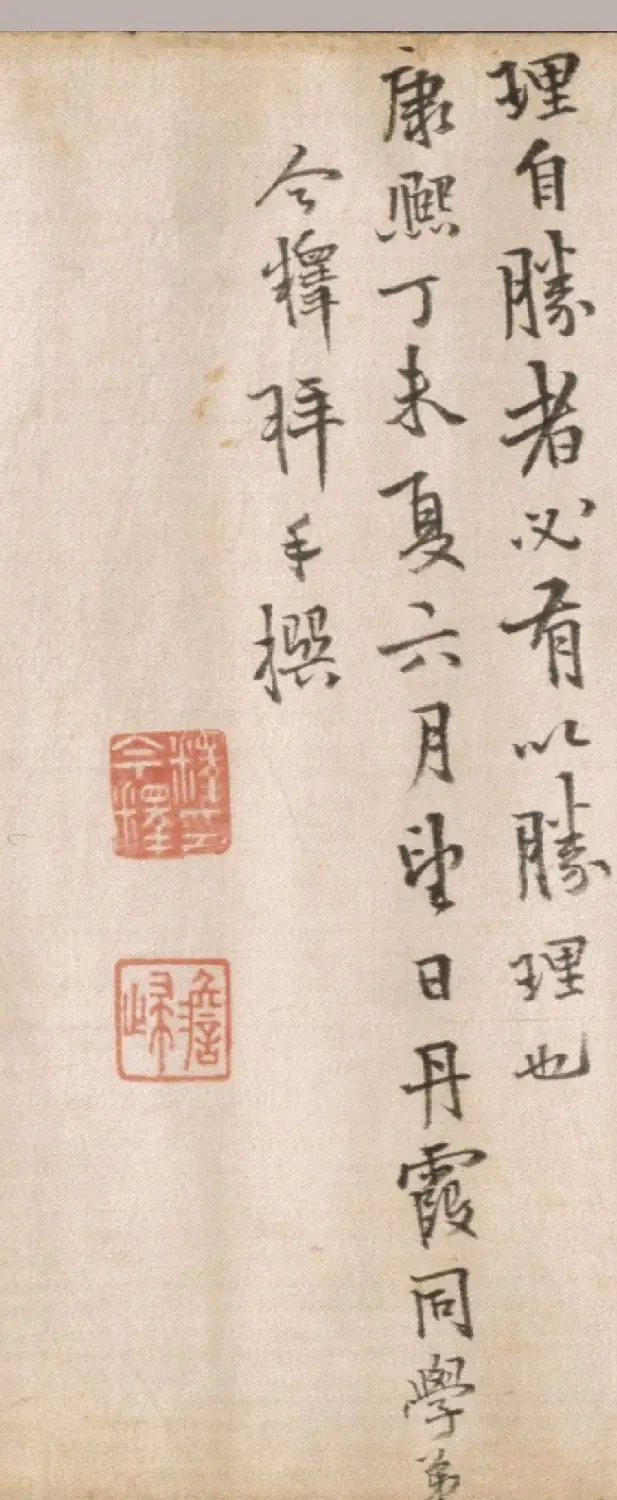 理自勝者必有以勝理也
康熙丁未夏六月望日丹霞同學弟
今釋拜手撰
今釋
澹歸